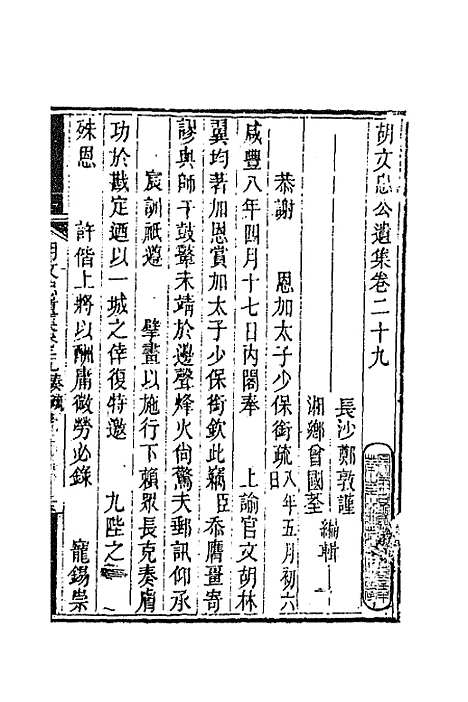 胡文忠公遺集卷二十九
長沙鄭敦謹
湘鄉曾國荃
編輯
恭謝　恩加太子少保銜疏八年五月初六日
咸豐八年四月十七日內閣奉　上諭官文胡林
翼均著加恩賞加太子少保銜欽此竊臣忝膺畺寄
謬與師干鼓鼙未靖於邊聲烽火尙驚夫郵訊仰承
宸訓祇遵　擘畫以施行下賴眾長克奏膚
功於戡定迺以一城之倖復特邀　九陛之
殊恩　許偕上將以酬庸微勞必錄　寵錫崇